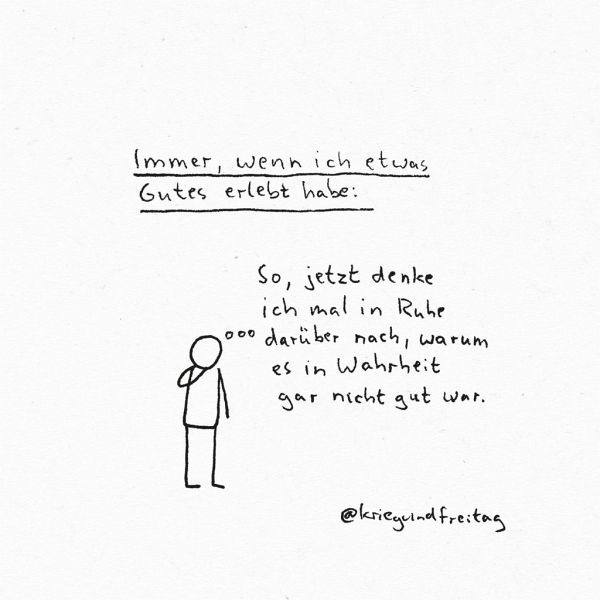 Immer, wenn ich etwas
Gutes erlebt habe:
So, jetzt denke
ich mal in Ruhe
darüber nach, warum
es in Wahrheit
gar nicht gut war.
@kriegundfreitag